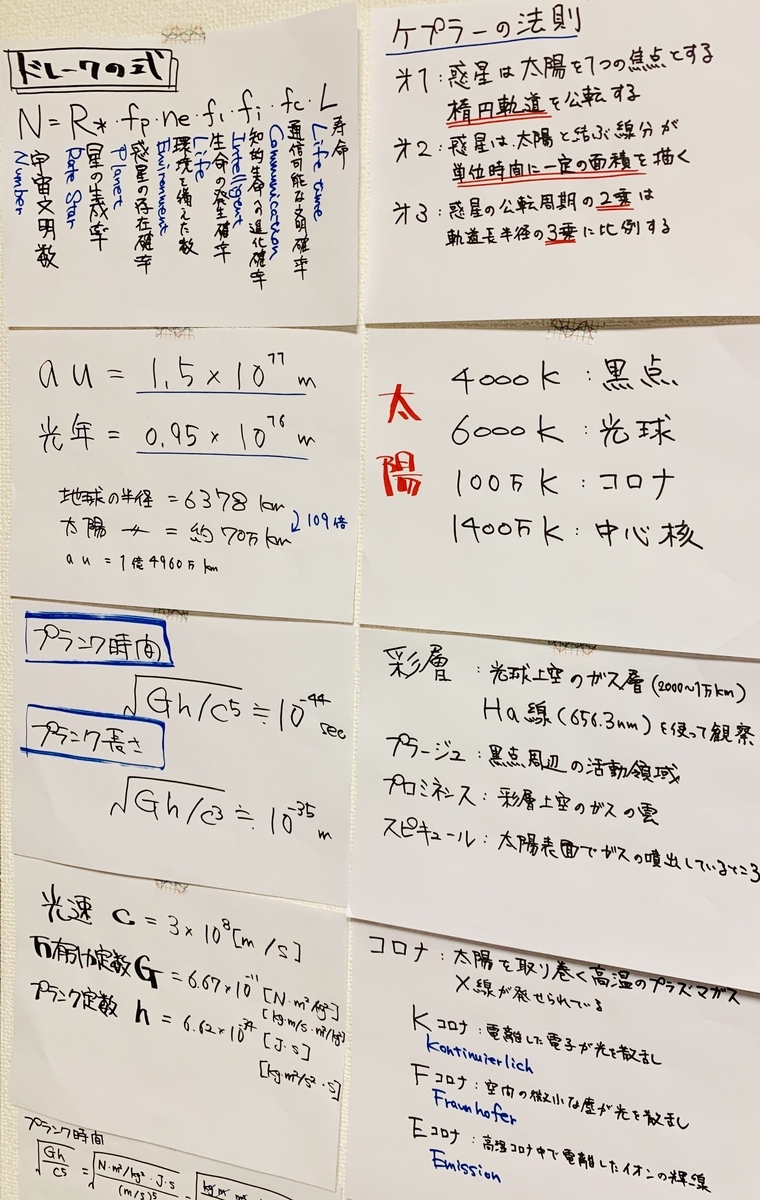 ドレークの式
N = R* · fp · ne · fl · fi · fc · L
Number
宇宙文明数
Rate Star
星の生成率
Planet
惑星の存在確率
Environment
環境を備えた数
Life
生命の発生確率
Intelligent
知的生命への進化確率
Communication
通信可能な文明確率
Life time
寿命
au = 1.5 × 10¹¹ m
光年 = 0.95 × 10¹⁶ m
地球の半径 = 6378 km
太陽 〃 = 約70万km
109倍
au = 1億4960万km
プランク時間
√Gh/c⁵ ≒ 10⁻⁴⁴ sec
プランク長さ
√Gh/c³ ≒ 10⁻³⁵ m
光速 c = 3 × 10⁸ [m/s]
万有引力定数 G = 6.67×10⁻¹¹ [N·m²/kg²]
[kg·m/s·m²/kg²]
プランク定数 h = 6.62×10⁻³⁴ [J·s]
[kg·m²/s²·s]
プランク時間
√Gh/c⁵ = √N·m²/kg²·J·s/(m/s)⁵ =
ケプラーの法則
オ1：惑星は太陽を1つの焦点とする
楕円軌道を公転する
オ2：惑星は、太陽と結ぶ線分が
単位時間に一定の面積を描く
オ3：惑星の公転周期の2乗は
軌道長半径の3乗に比例する
太陽
4000K：黒点
6000K：光球
100万K：コロナ
1400万K：中心核
彩層：光球上空のガス層(2000~1万km)
Hα線(656.3nm)を使って観察
プラージュ：黒点周辺の活動領域
プロミネンス：彩層上空のガスの雲
スピキュール：太陽表面でガスの噴出しているところ
コロナ：太陽を取り巻く高温のプラズマガス
X線が発せられている
Kコロナ：電離した電子が光を散乱し
Kontinuierlich
Fコロナ：空間の微小な塵が光を散乱し
Fraunhofer
Eコロナ：高温コロナ中で電離したイオンの輝線
Emission